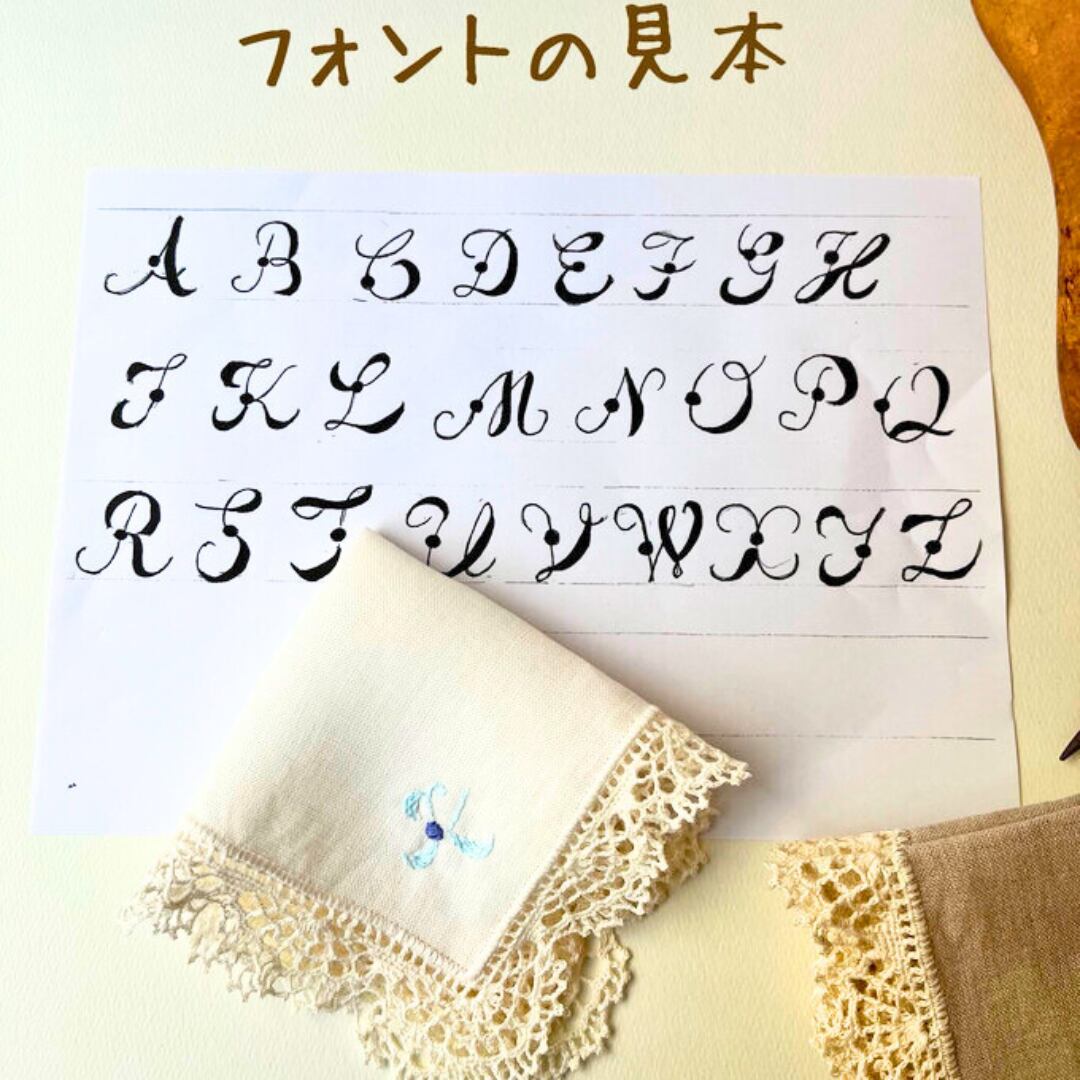 フォントの見本
A B C D E F G H
I K L M N O P Q
R S T U V W X Y Z
K